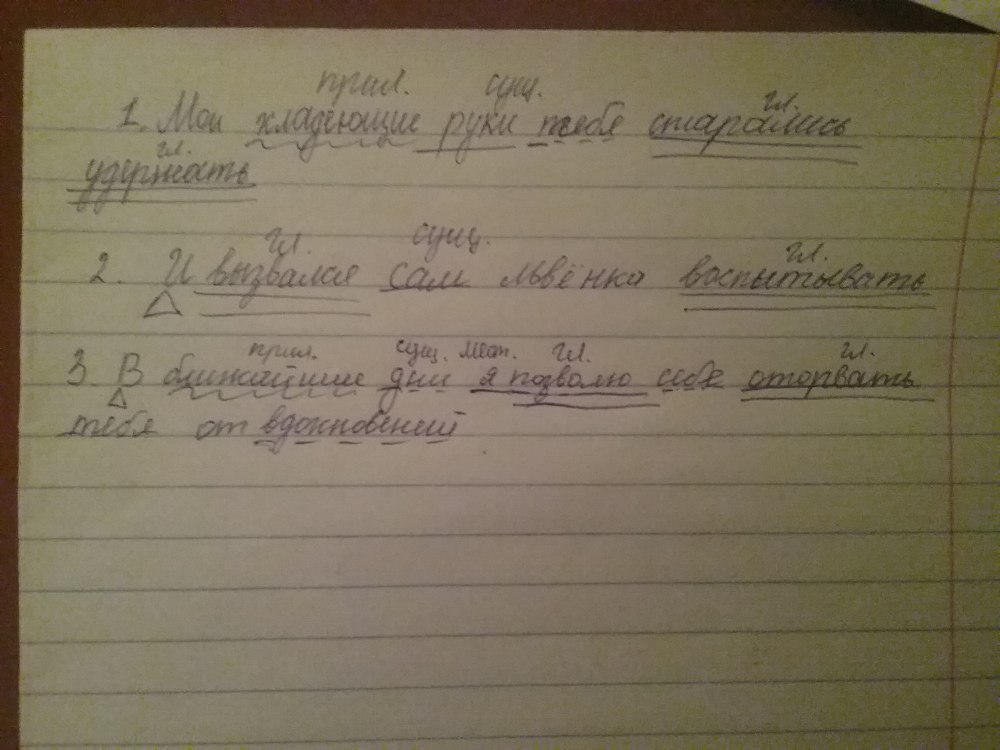 прил. сущ.
1. Мои хладеющие руки тебя старались
гл.
удержать
гл.
гл. сущ. гл.
2. И вызвался сам львёнка воспитывать
прил. сущ. мест. гл. гл.
3. В ближайшие дни я позволю себе оторвать
тебя от вдохновений